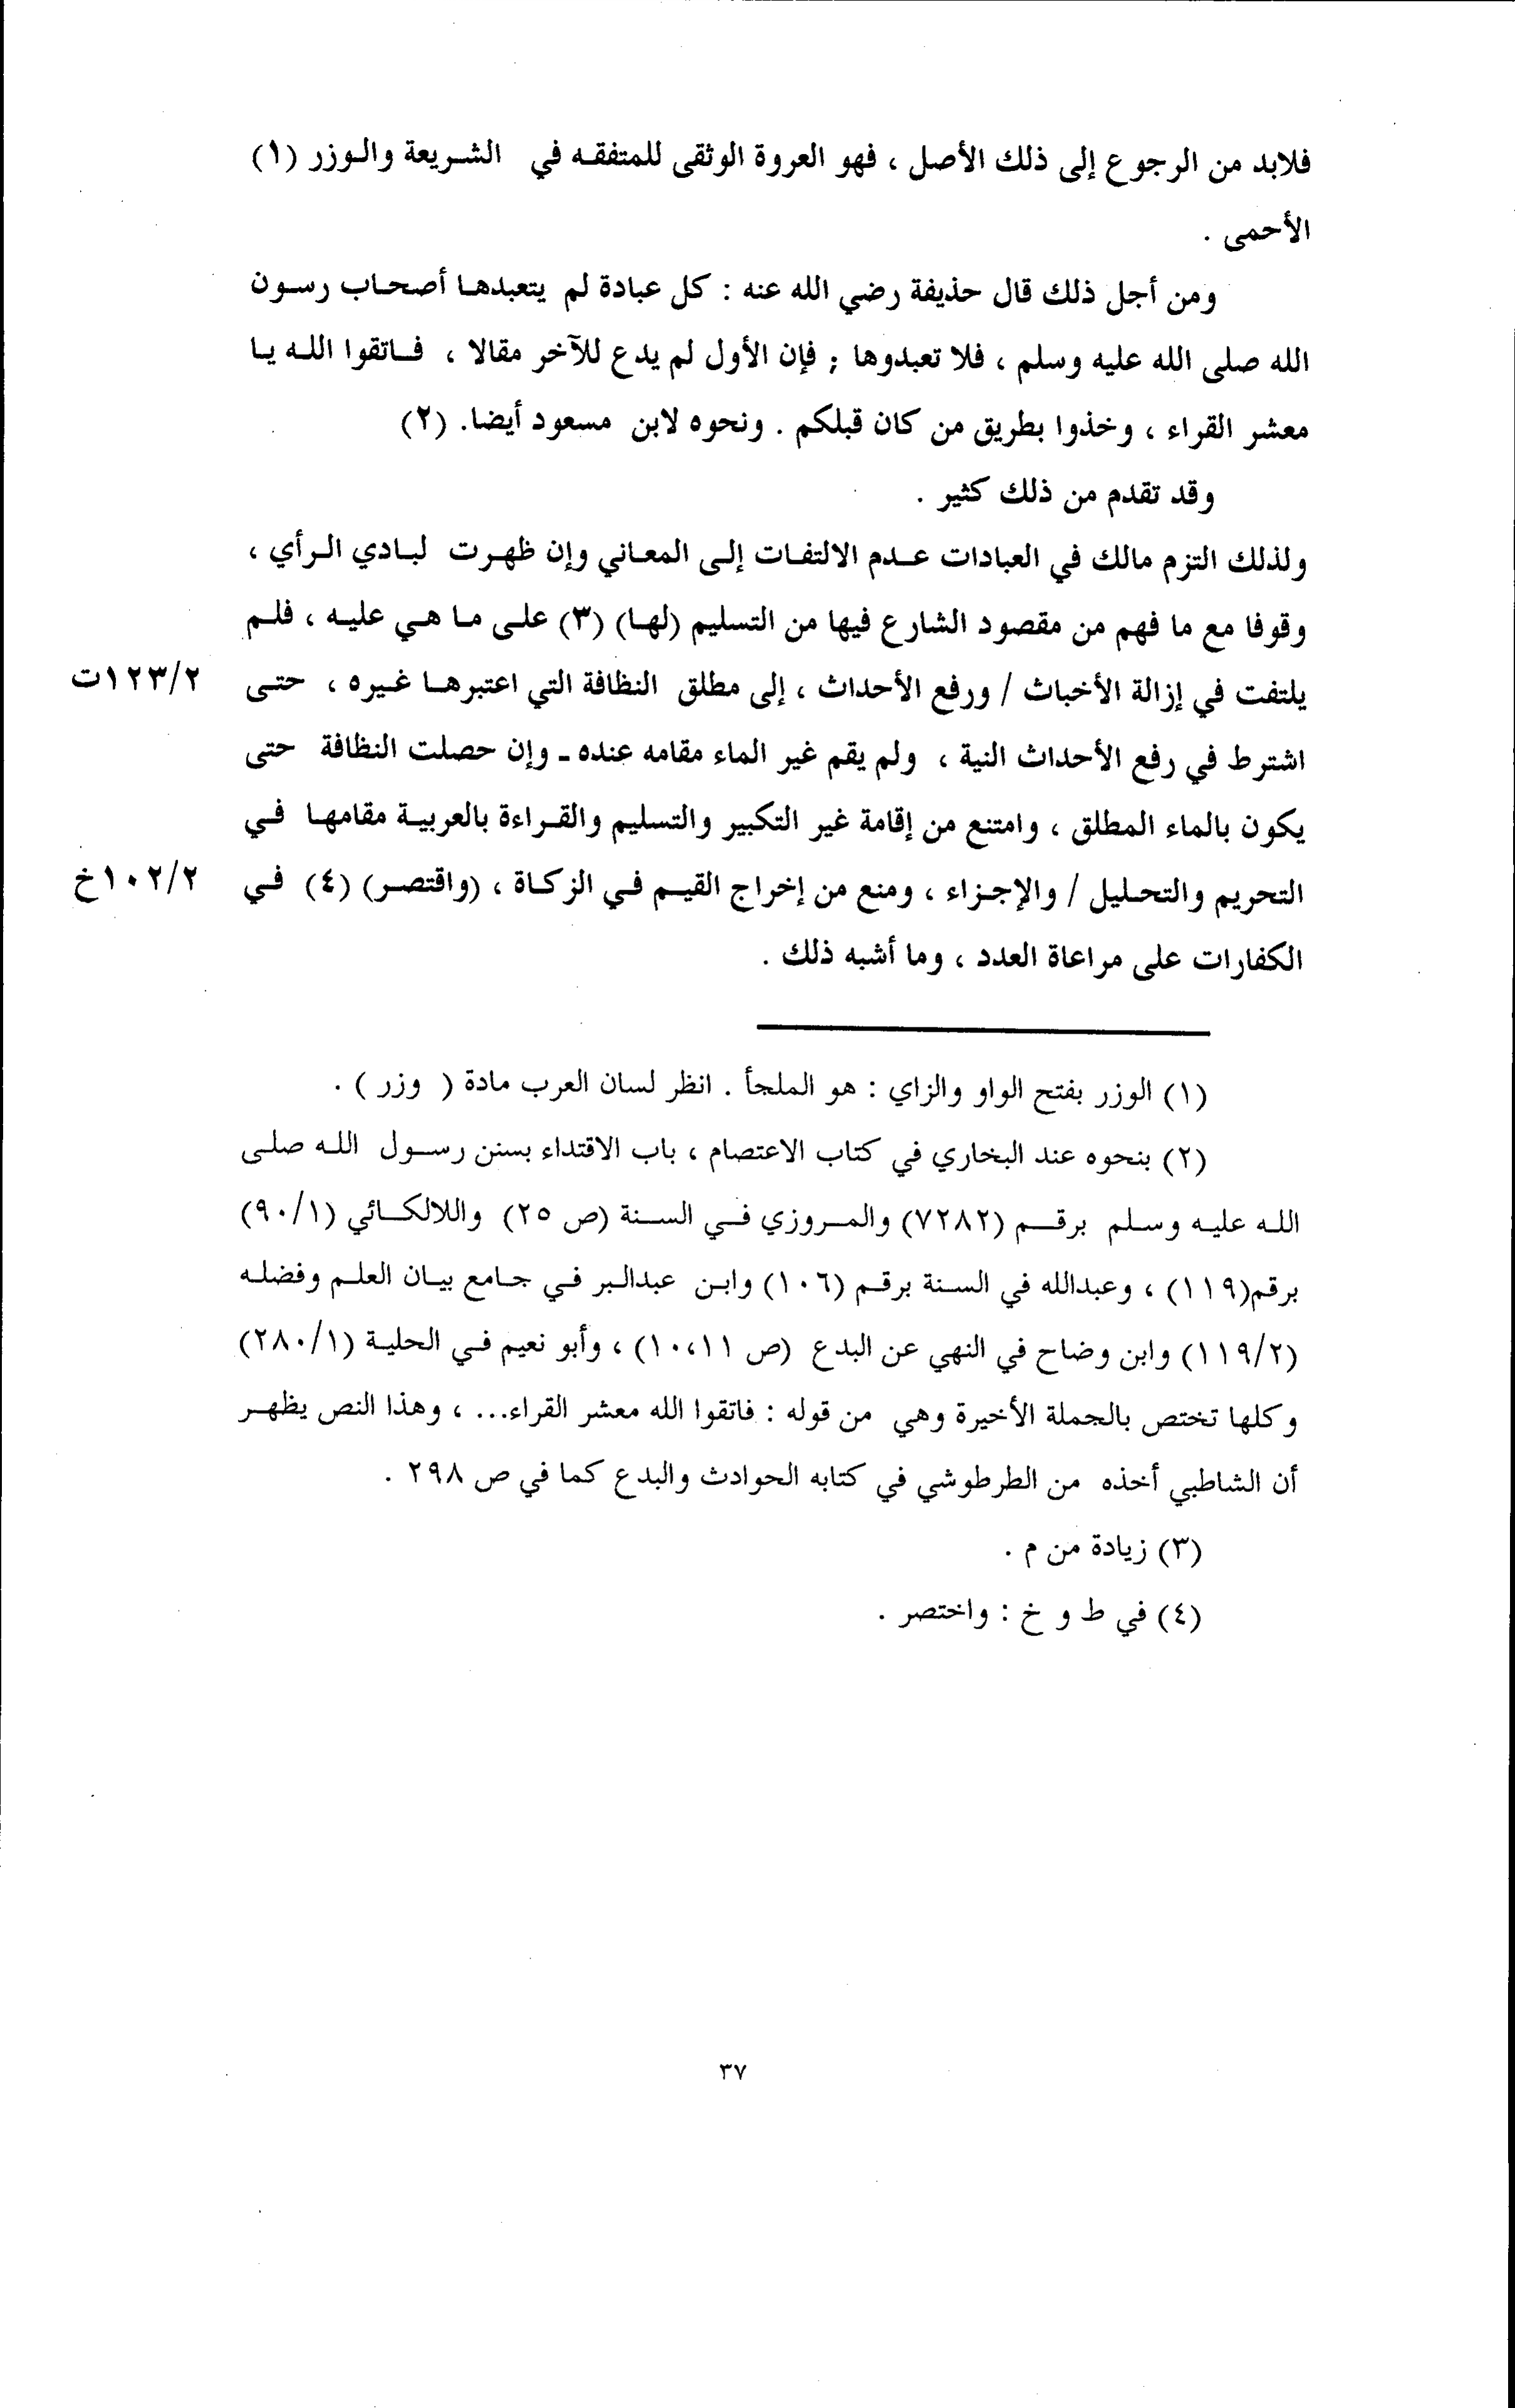 فلابد من الرجوع إلى ذلك الأصل ، فهو العروة الوثقى للمتفقه في الشريعة والوزر (١)
الأحمى .
ومن أجل ذلك قال حذيفة رضي الله عنه : كل عبادة لم يتعبدها أصحاب رسون
الله صلى الله عليه وسلم ، فلا تعبدوها ; فإن الأول لم يدع للآخر مقالا ، فاتقوا الله يا
معشر القراء ، وخذوا بطريق من كان قبلكم . ونحوه لابن مسعود أيضا. (٢)
وقد تقدم من ذلك كثير .
ولذلك التزم مالك في العبادات عدم الالتفات إلى المعاني وإن ظهرت لبادي الرأي ،
وقوفا مع ما فهم من مقصود الشارع فيها من التسليم (لها) (٣) على ما هي عليه ، فلم
يلتفت في إزالة الأخباث / ورفع الأحداث ، إلى مطلق النظافة التي اعتبرها غيره ، حتى ١٢٣/٢ت
اشترط في رفع الأحداث النية ، ولم يقم غير الماء مقامه عنده - وإن حصلت النظافة حتى
يكون بالماء المطلق ، وامتنع من إقامة غير التكبير والتسليم والقراءة بالعربية مقامها في
التحريم والتحليل / والإجزاء ، ومنع من إخراج القيم في الزكاة ، (واقتصر) (٤) في ١٠٢/٢خ
الكفارات على مراعاة العدد ، وما أشبه ذلك .
(١) الوزر بفتح الواو والزاي : هو الملجأ . انظر لسان العرب مادة ( وزر ) .
(٢) بنحوه عند البخاري في كتاب الاعتصام ، باب الاقتداء بسنن رسول الله صلى
الله عليه وسلم برقم (٧٢٨٢) والمروزي في السنة (ص ٢٥) واللالكائي (٩٠/١)
برقم(١١٩) ، وعبدالله في السنة برقم (١٠٦) وابن عبدالبر في جامع بيان العلم وفضله
(١١٩/٢) وابن وضاح في النهي عن البدع (ص ١٠،١١) ، وأبو نعيم في الحلية (٢٨٠/١)
وكلها تختص بالجملة الأخيرة وهي من قوله : فاتقوا الله معشر القراء... ، وهذا النص يظهر
أن الشاطبي أخذه من الطرطوشي في كتابه الحوادث والبدع كما في ص ٢٩٨ .
(٣) زيادة من م .
(٤) في ط و خ : واختصر .
٣٧